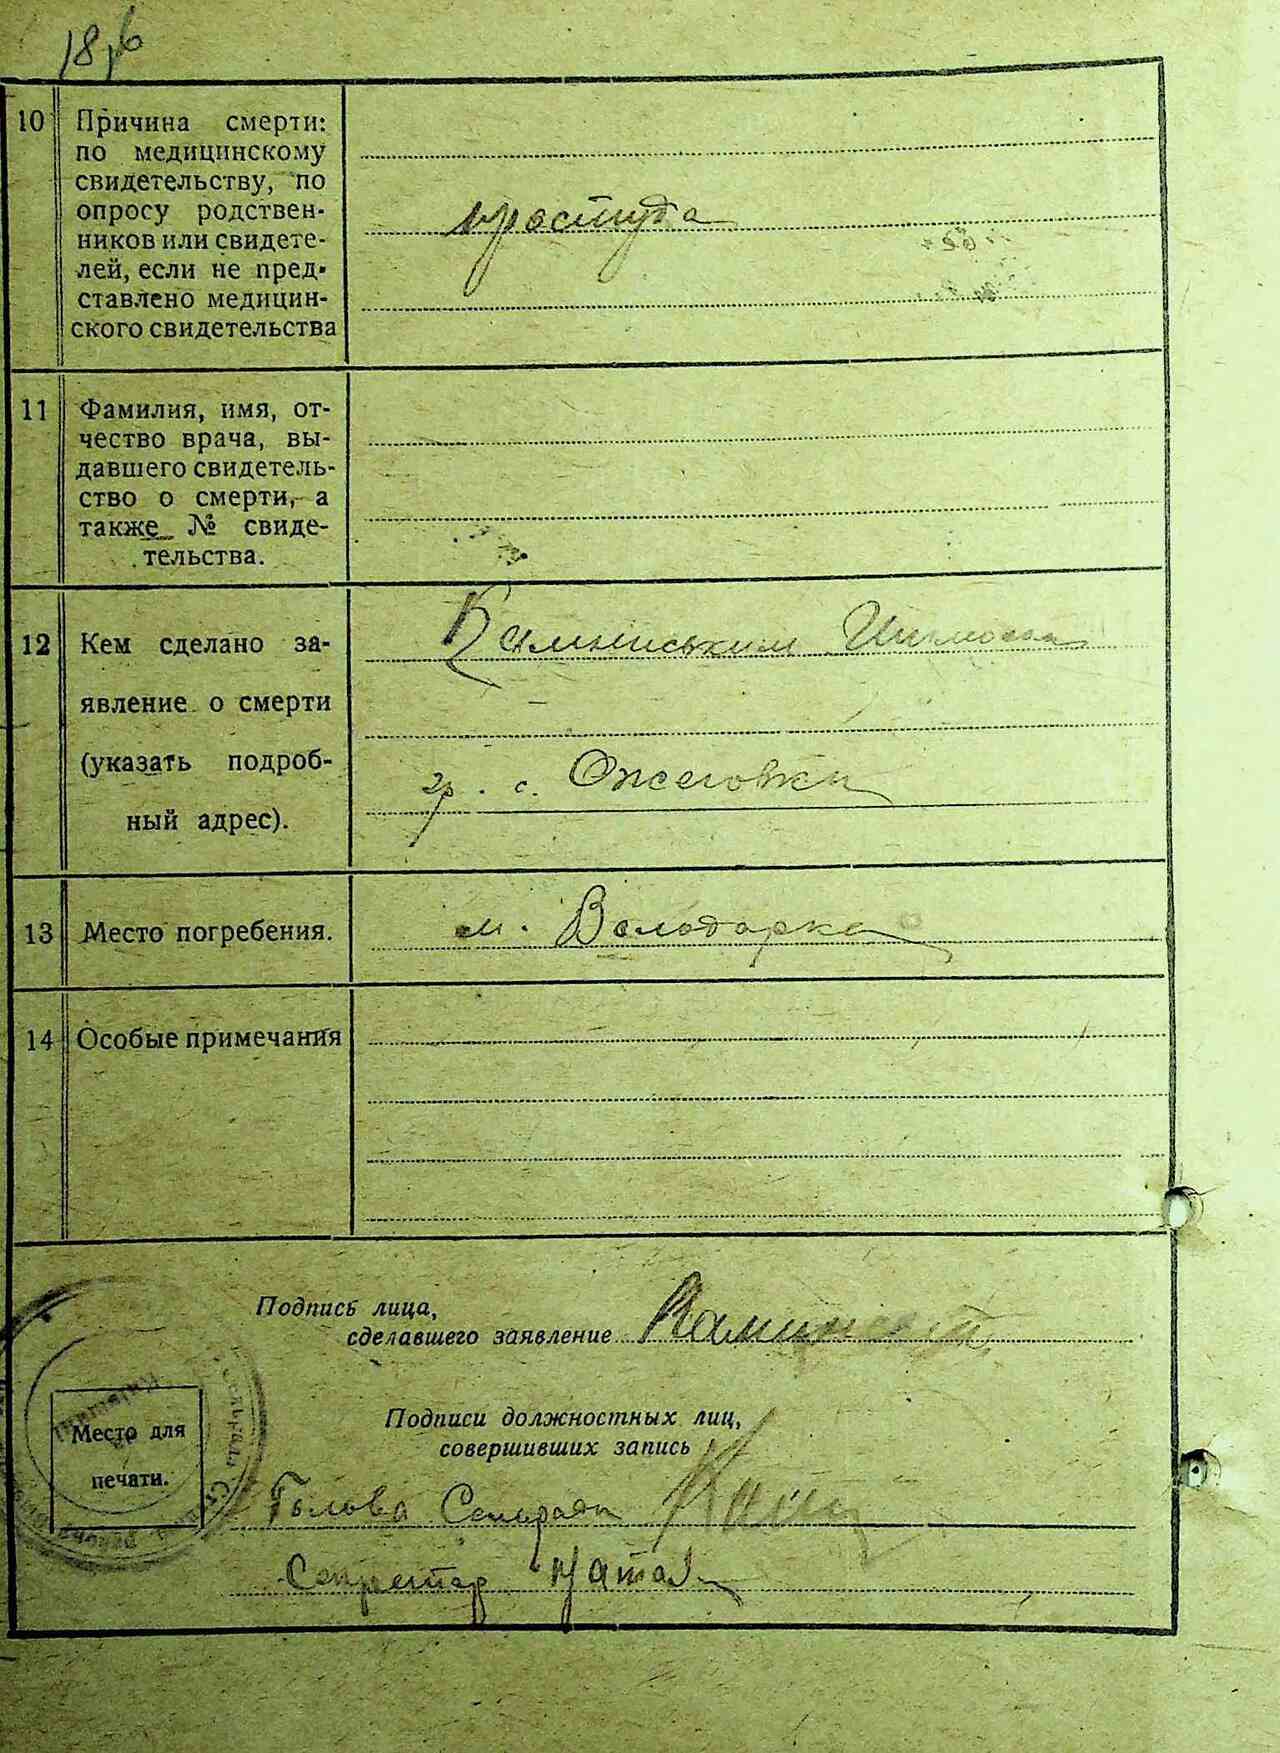 10 Причина смерти:
по медицинскому
свидетельству, по
опросу родствен-
ников или свидете-
лей, если не пред-
ставлено медицин-
ского свидетельства
простуда
11 Фамилия, имя, от-
чество врача, вы-
давшего свидетель-
ство о смерти, а
также № свиде-
тельства.
12 Кем сделано за-
явление о смерти
(указать подроб-
ный адрес).
гр. с. Ожеговки
13 Место погребения.
м. Володарка
14 Особые примечания
Подпись лица,
сделавшего заявление
Подписи должностных лиц,
совершивших запись
Место для
печати.
Голова Сельради
Секретар